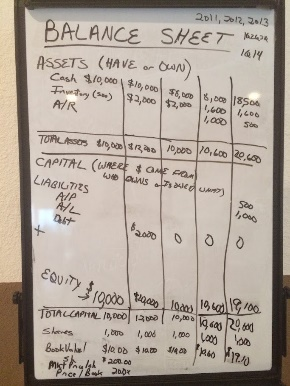 2011, 2012, 2013
BALANCE SHEET
1Q14
ASSETS (HAVE or OWN)
Cash $10,000 $10,000 $8,000 8,000 18,500
Inventory $2,000 $2,000 1,600 1,600
A/R 1,000 500
TOTAL ASSETS $10,000 $12,000 10,000 10,600 20,600
CAPITAL (WHERE $ COME FROM
WHO OWNS or IS OWED WHAT)
LIABILITIES
A/P 500
A/L 1,000
Debt
+ $2000 0 0 0
EQUITY $10,000 10,000 10,600 19,100
TOTAL CAPITAL 10,000 12,000 10,000 10,600 20,600
Shares 1,000 1,000 1,000 1,000 1,000
Book Value/ $10.00 $10.00 $10.00 $10.60 $19.10
$200.00
Price/Book 20.0x